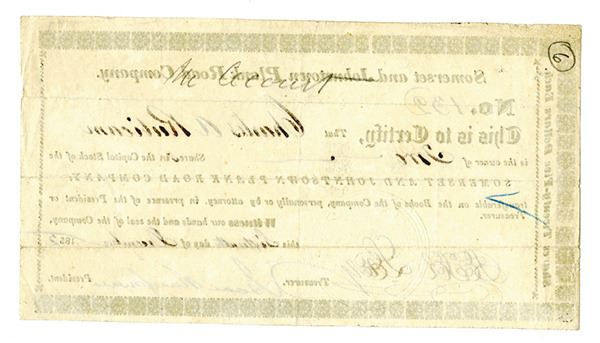 6
The Account
Somerset and Johnstown Plank Road Company.
No. 139
This is to Certify, That Charles A
is the owner of Five Share in the Capital Stock of the
SOMERSET AND JOHNSTOWN PLANK ROAD COMPANY,
transferable on the Books of the Company, personally or by attorney, in presence of the President or
Treasurer.
Witness our hands and the seal of the Company,
this day of December 185
Treasurer. President.
Shares Twenty-Five Dollars Each.